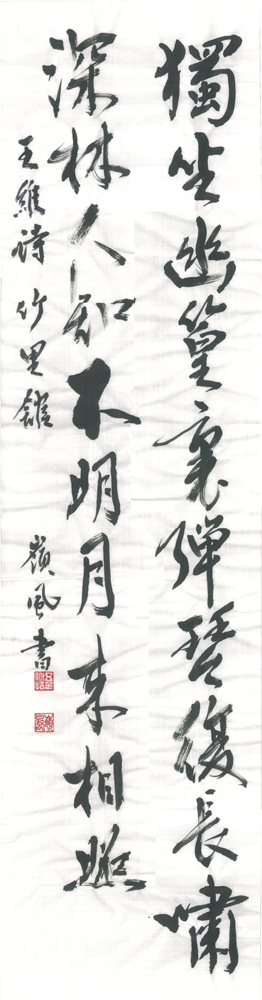 獨坐幽篁裏彈琴復長嘯
深林人知不明月来相照
王維詩 竹里館
嶺風書